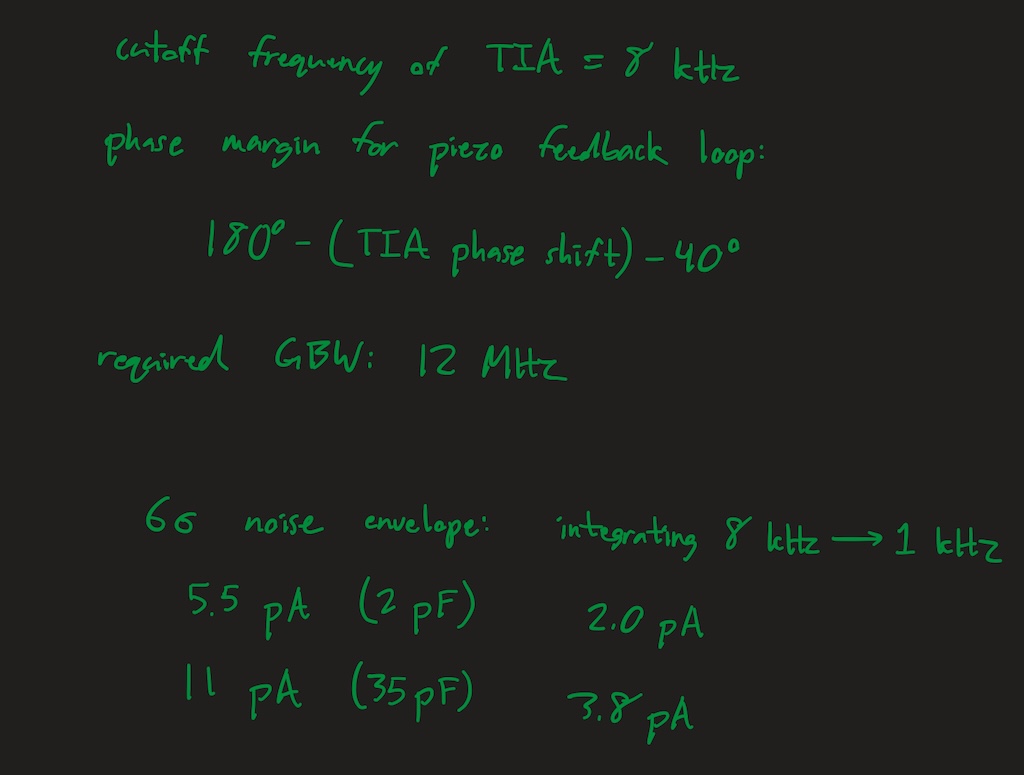 cutoff frequency of TIA = 8 kHz
phase margin for piezo feedback loop:
180° - (TIA phase shift) - 40°
required GBW: 12 MHz
6σ noise envelope: integrating 8 kHz → 1 kHz
5.5 pA (2 pF) 2.0 pA
11 pA (35 pF) 3.8 pA